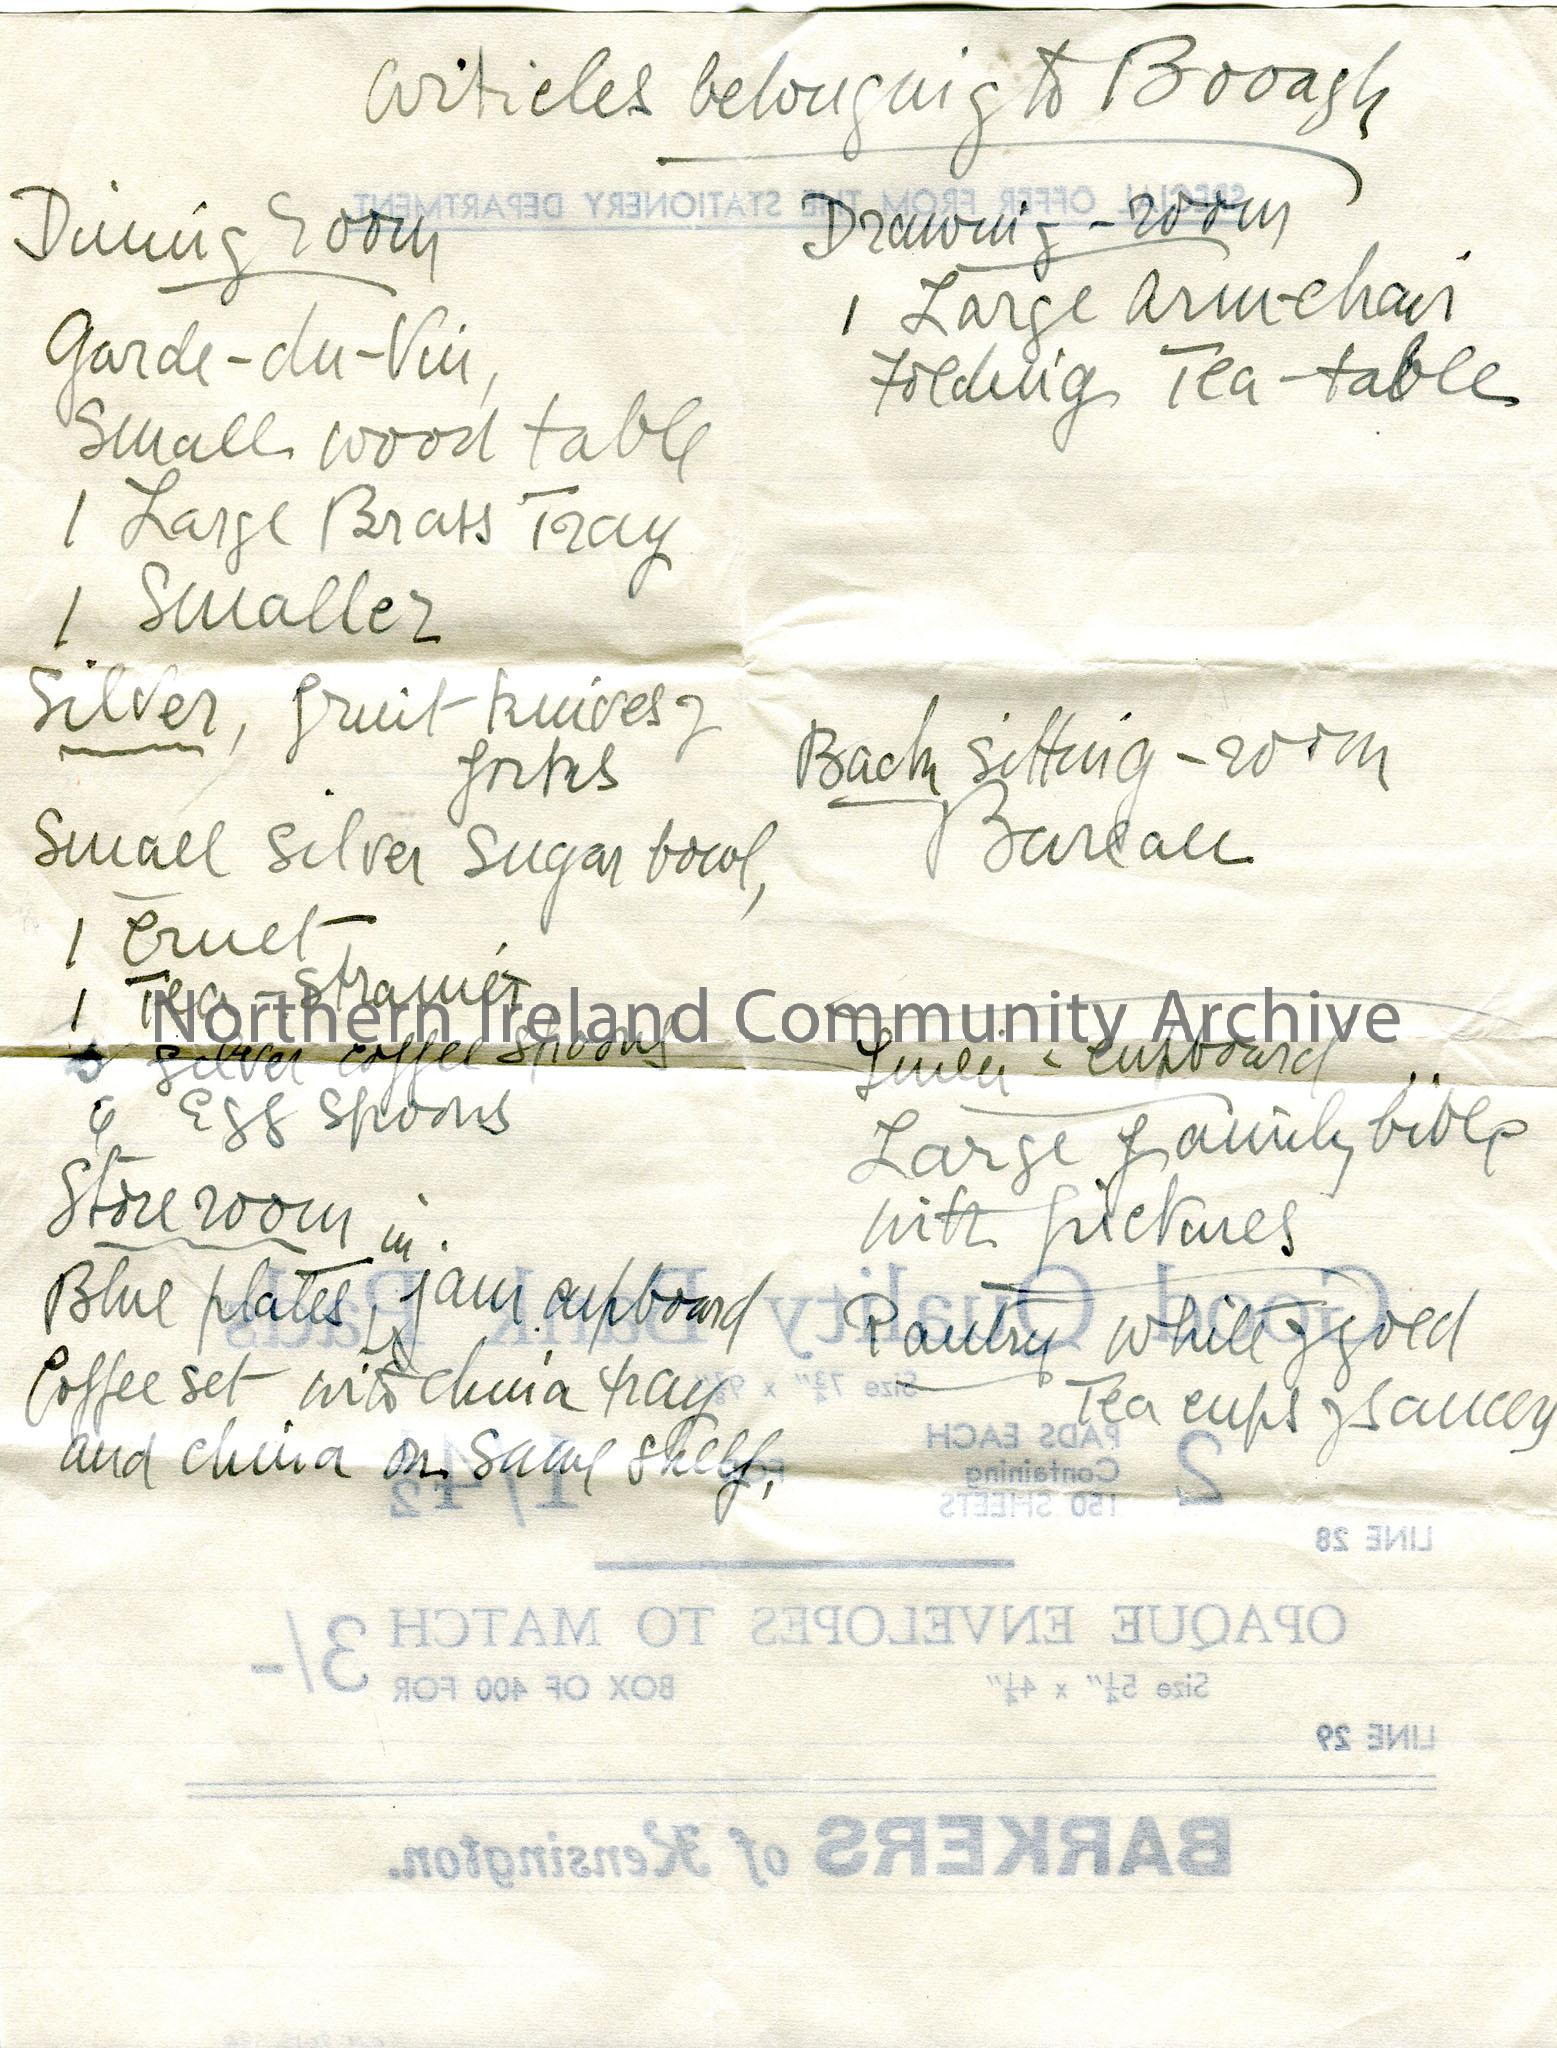 Articles belonging to Booagh
Dining room
Garde-du-Vin,
Small wood table
1 Large Brass Tray
1 Smaller
Silver, fruit knives &
forks
Small silver sugar bowl,
1 Cruet
1 Tea-strainer
silver coffee spoons
6 Egg spoons
Store room
Blue plates, in jam cupboard
Coffee set with china tray
and china on same shelf,
Drawing-room
1 Large arm-chair
Folding Tea-table
Back sitting-room
Bureau
Linen-cupboard
Large family bible
with pictures
Pantry white & gold
Tea cups & saucers
Northern Ireland Community Archive
SPECIAL OFFER FROM THE STATIONERY DEPARTMENT
Good Quality Bank Pads
Size 7¾" x 9⅞"
2 PADS EACH Containing 150 SHEETS FOR 1/4½
LINE 28
OPAQUE ENVELOPES TO MATCH
Size 5¼" x 4¼" BOX OF 400 FOR 3/-
LINE 29
BARKERS of Kensington.